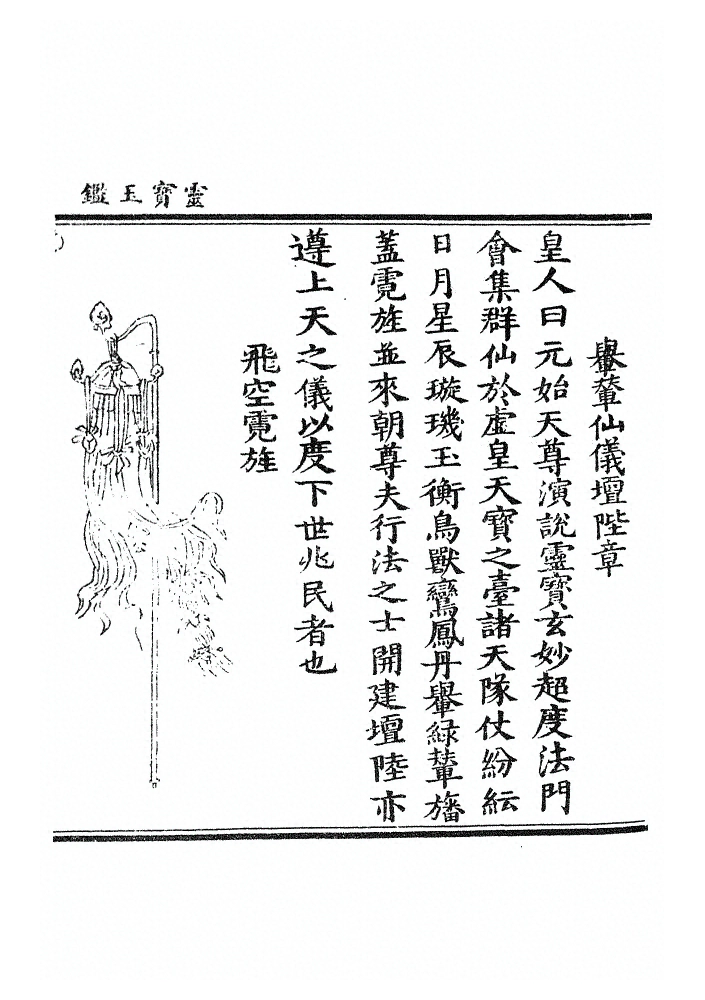 靈寳玉鑑
轝輦仙儀壇陛章
皇人曰元始天尊演說靈寳玄妙超度法門
會集群仙於虛皇天寳之臺諸天隊仗紛紜
日月星辰璇璣玉衡鳥獸鸞鳳丹轝緑輦旛
蓋霓旌並來朝尊夫行法之士開建壇陸亦
遵上天之儀以度下世兆民者也
飛空霓旌